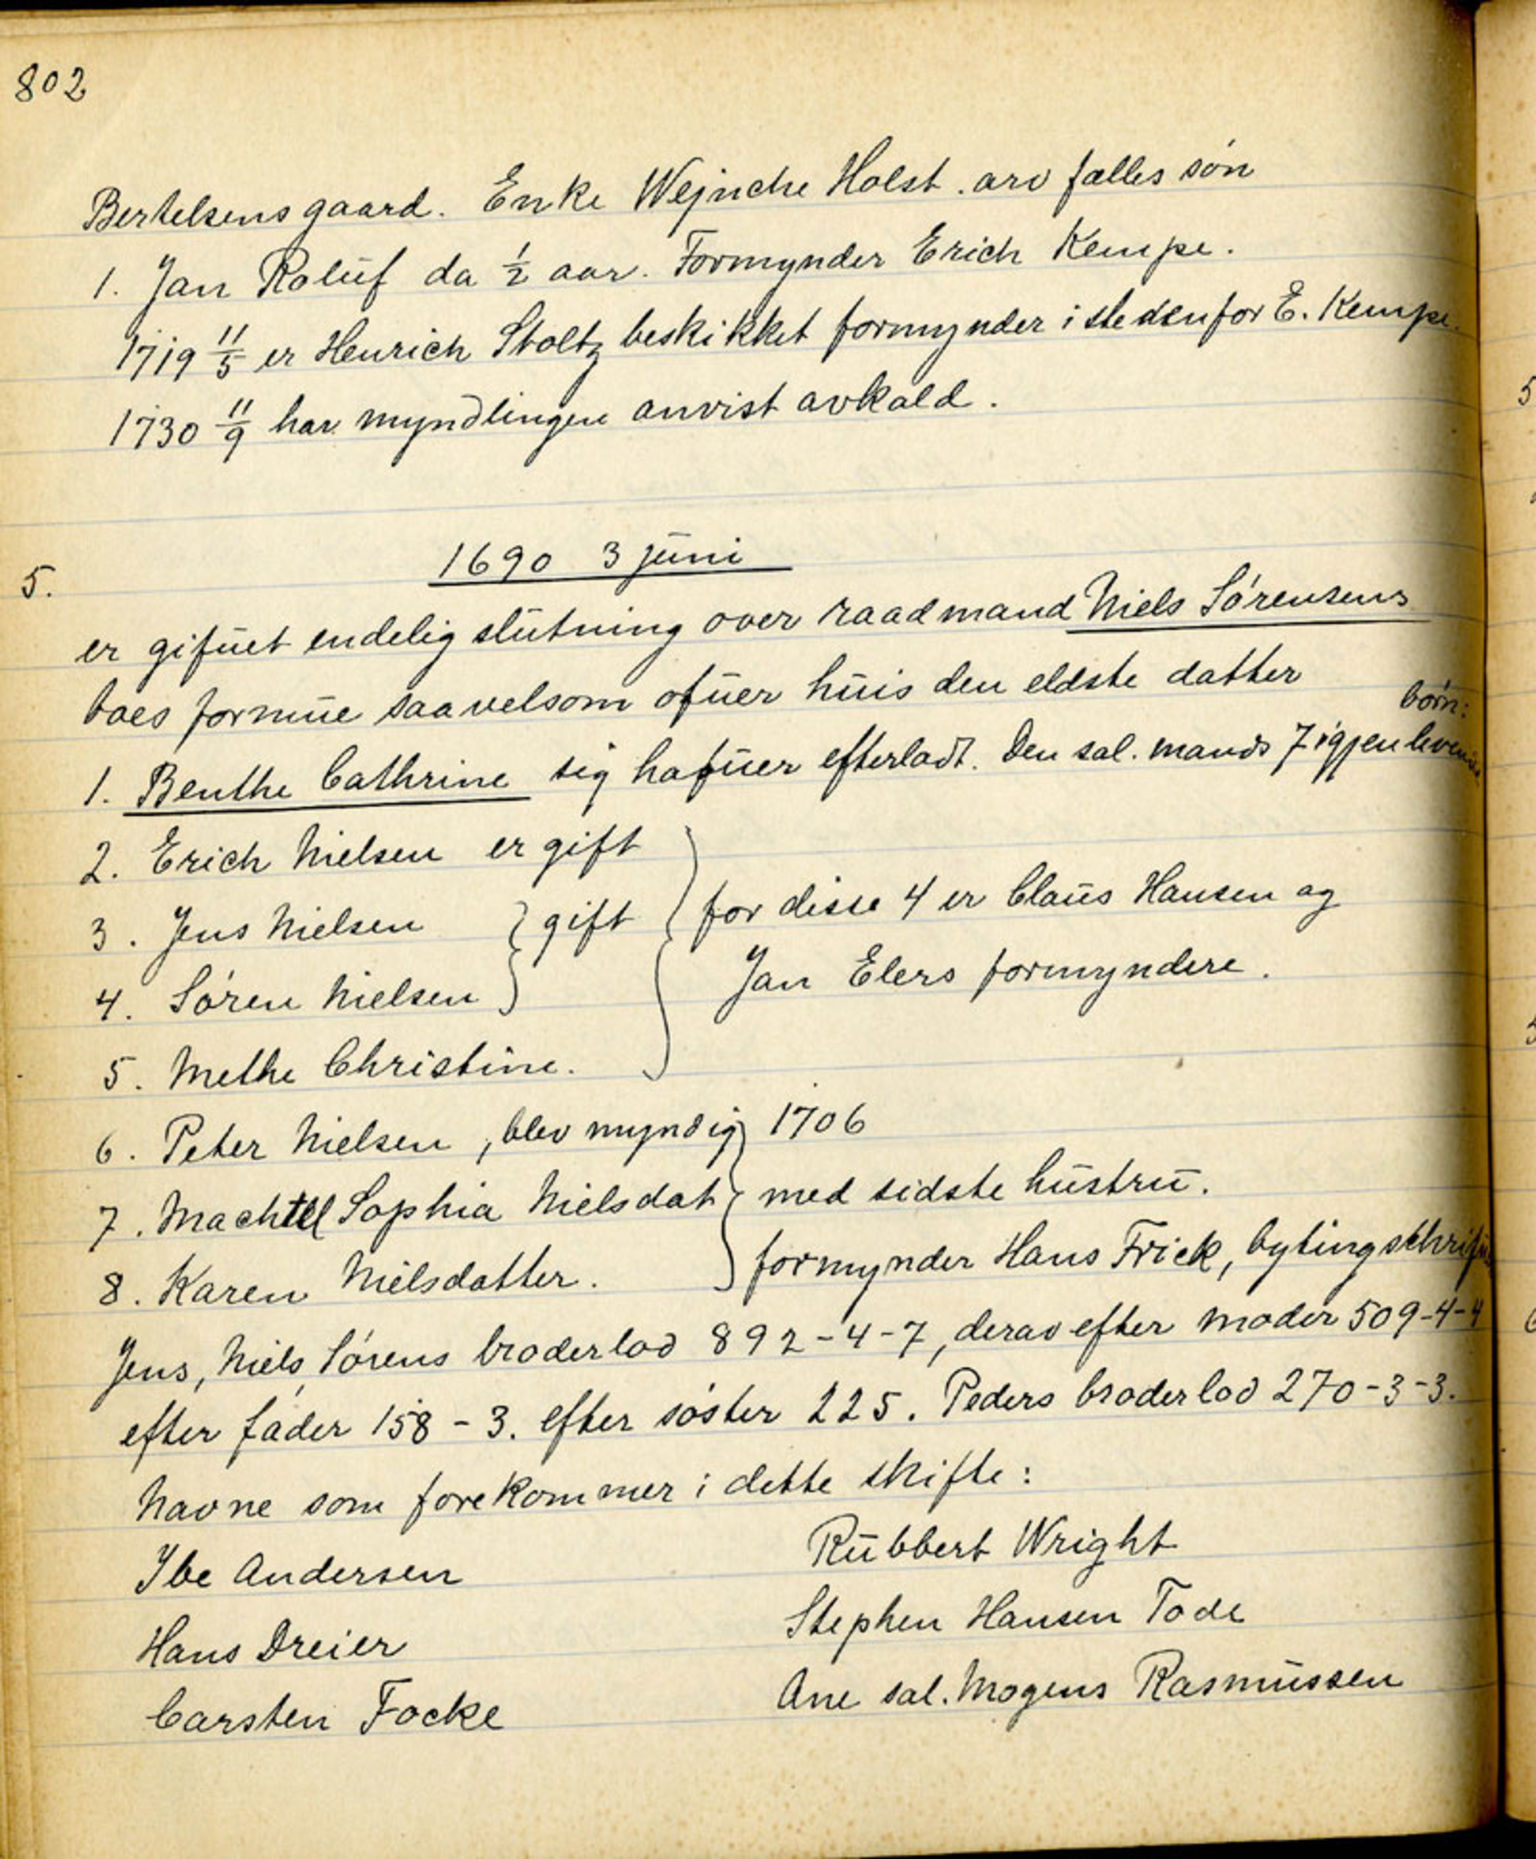 802
Bertelsens gaard. Enke Wejnche Holst. arv fælles søn
1. Jan Roluf da 1/2 aar. Formynder Erich Kempe.
1719 11/5 er Henrich Stoltz beskikket formynder istedenfor E. Kempe.
1730 11/9 har myndlingen anvist avkald.
1690 3 juni
5.
er gifuet endelig slutning over raadmand Niels Sørensens
boes formue saavelsom ofuer huis den eldste datter
børn:
1. Benthe Cathrine sig hafuer efterladt. Den sal. mands 7 igjenlevende
2. Erich Nielsen er gift
3. Jens Nielsen } gift } for disse 4 er Claus Hansen og
4. Søren Nielsen } Jan Elers formyndere.
5. Methe Christine.
6. Peter Nielsen, blev myndig 1706
7. Machtel Sophia Nielsdat } med sidste hustru.
8. Karen Nielsdatter. formynder Hans Frick, bytingschrifu
Jens, Niels, Sørens broderlod 892-4-7, derav efter moder 509-4-4
efter fader 158-3. efter søster 225. Peders broderlod 270-3-3.
Navne som forekommer i dette skifte:
Rubbert Wright
Ibe Andersen
Stephen Hansen Tode
Hans Dreier
Ane sal. Mogens Rasmussen
Carsten Focke